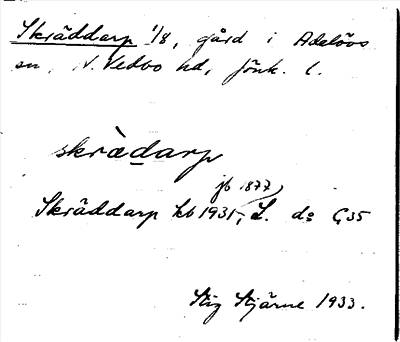 Skräddarp 1/8, gård i Adelövs
sn, N. Vedbo hd, Jönk. l.
skrædarp
jb 1877
Skräddarp kb 1931, L. d:o G35
Stig Stjärne 1933.